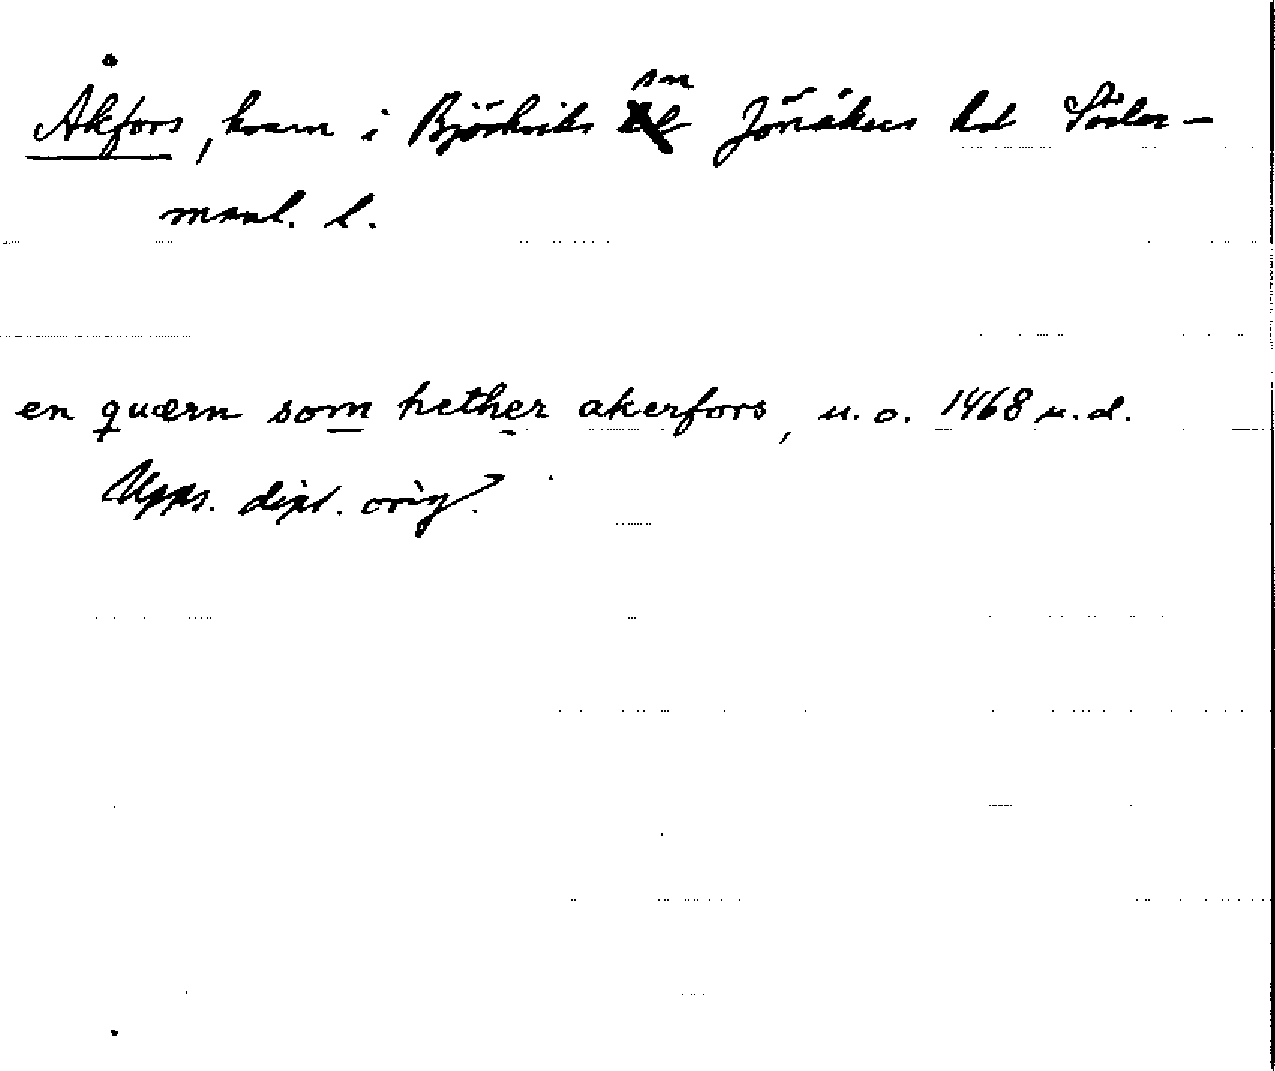 Åkfors, kvarn i Björkviks sn Jönåkers hd Söder-
manl. l.
en quærn som hether akerfors, u. o. 1468 u. d.
Upps. dipl. orig.